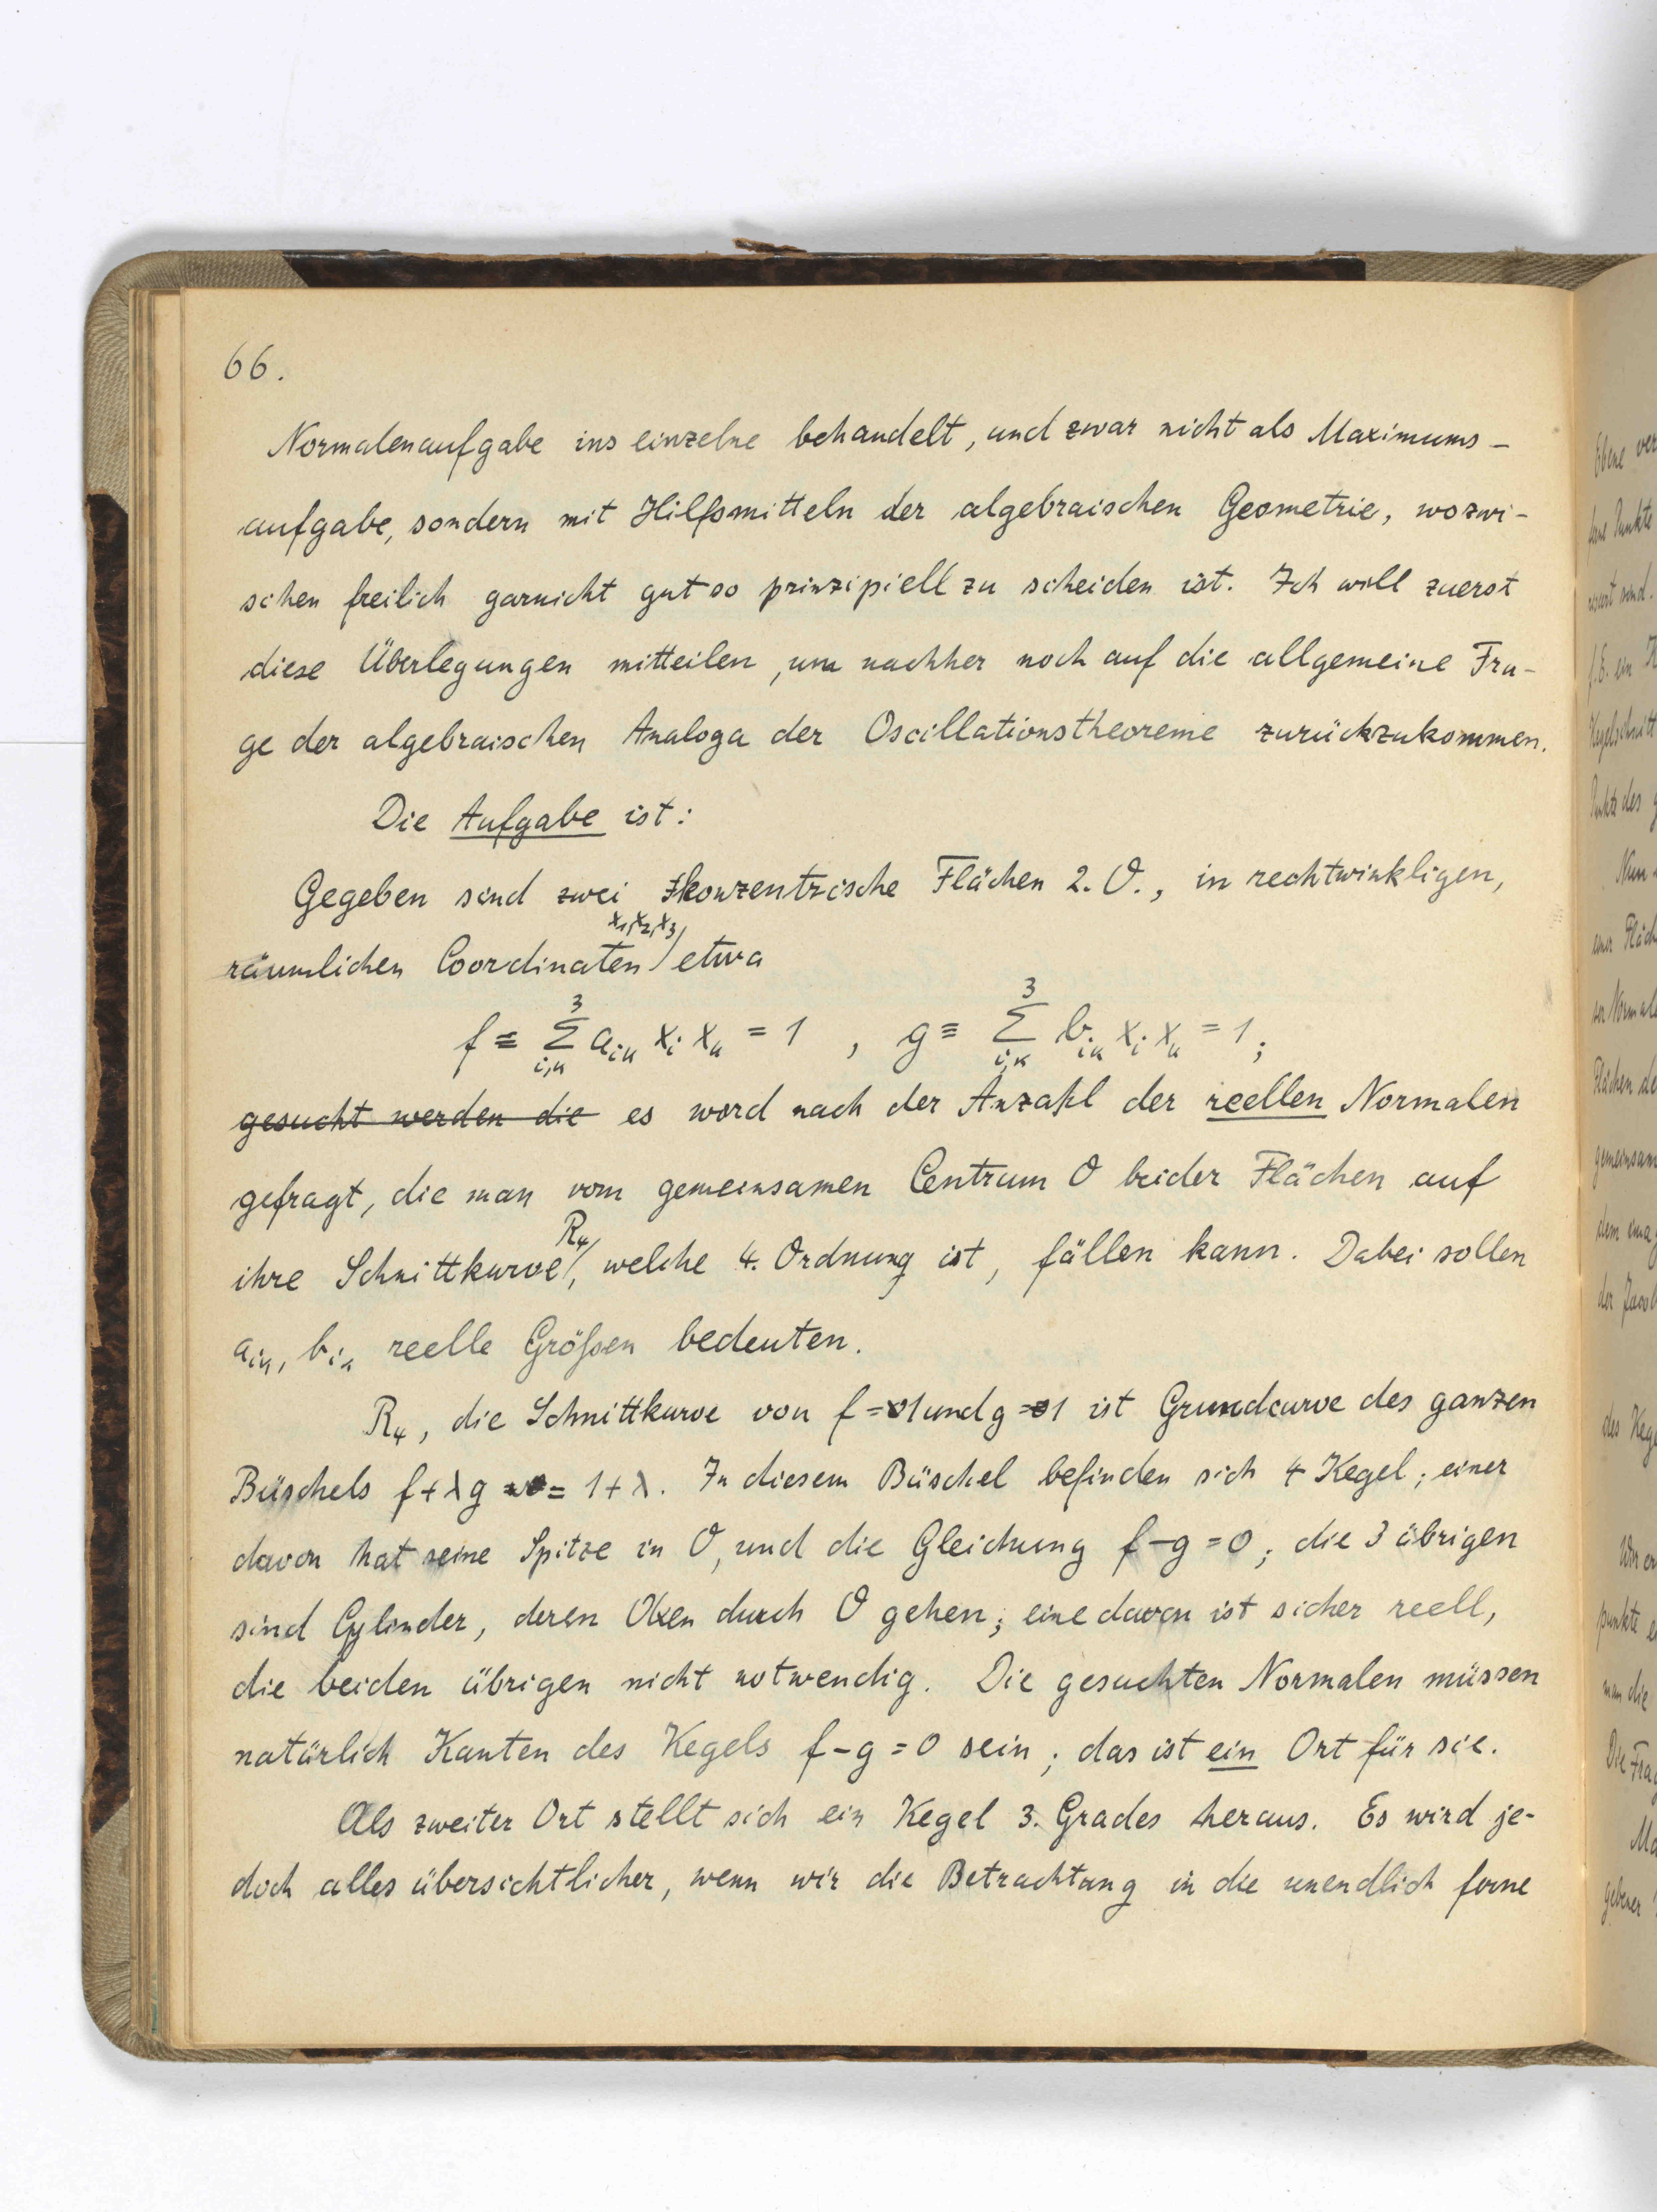 66.
Normalenaufgabe ins einzelne behandelt, und zwar nicht als Maximums-
aufgabe, sondern mit Hilfsmitteln der algebraischen Geometrie, wozwi-
schen freilich garnicht gut so prinzipiell zu scheiden ist. Ich will zuerst
diese Überlegungen mitteilen, um nachher noch auf die allgemeine Fra-
ge der algebraischen Analoga der Oscillationstheoreme zurückzukommen.
Die Aufgabe ist:
Gegeben sind zwei konzentrische Flächen 2. O., in rechtwinkligen,
räumlichen Coordinaten x₁,x₂,x₃ etwa
f ≡ ∑³ᵢ,ₖ aᵢₖ xᵢ xₖ = 1 , g ≡ ∑³ᵢ,ₖ bᵢₖ xᵢ xₖ = 1;
gesucht werden die es word nach der Anzahl der reellen Normalen
gefragt, die man vom gemeinsamen Centrum O beider Flächen auf
ihre Schnittkurve R₄, welche 4. Ordnung ist, fällen kann. Dabei sollen
aᵢₖ, bᵢₖ reelle Größen bedeuten.
R₄, die Schnittkurve von f=1 und g=1 ist Grundcurve des ganzen
Büschels f+λg = 1+λ. In diesem Büschel befinden sich 4 Kegel; einer
davon hat seine Spitze in O, und die Gleichung f-g=0; die 3 übrigen
sind Cylinder, deren Axen durch O gehen; eine davon ist sicher reell,
die beiden übrigen nicht notwendig. Die gesuchten Normalen müssen
natürlich Kanten des Kegels f-g=0 sein; das ist ein Ort für sie.
Als zweiter Ort stellt sich ein Kegel 3. Grades heraus. Es wird je-
doch alles übersichtlicher, wenn wir die Betrachtung in die unendlich ferne